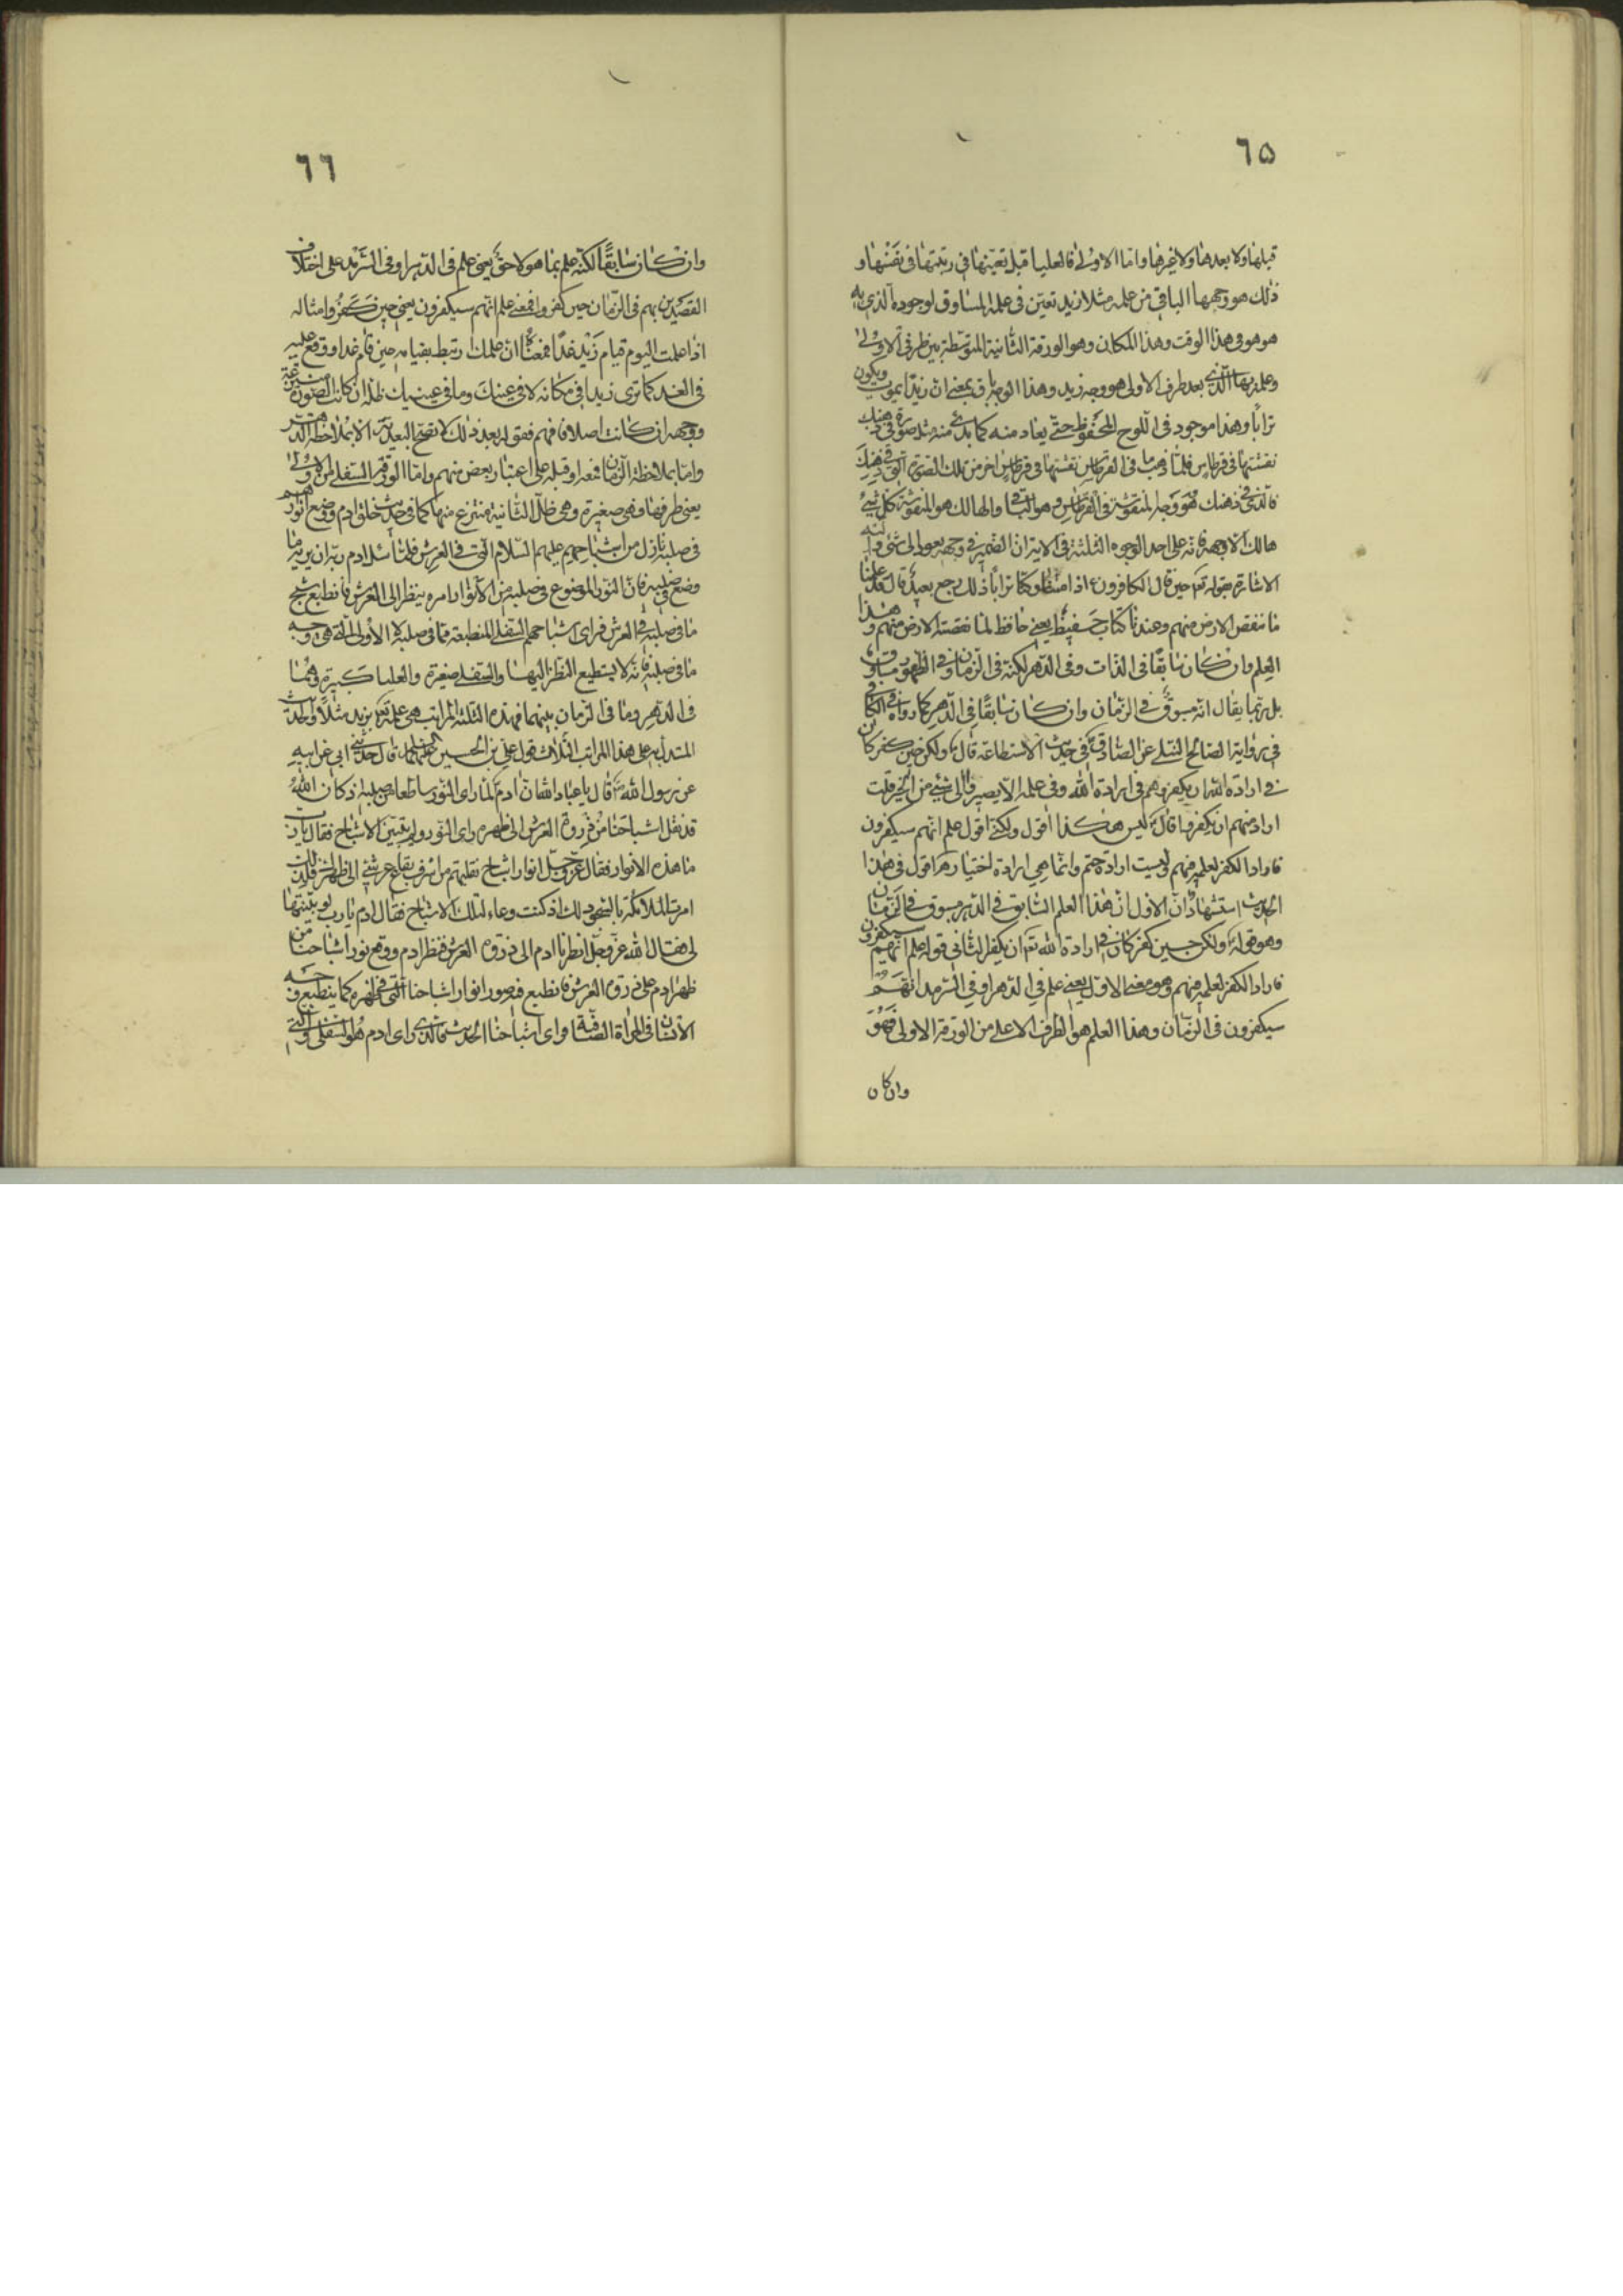 ٦٥
قبلها ولا بعدها ولا غيرها واما الاولى فالعليا قبل تعينها في رتبتها في نفسها و
ذلك هو وجهها الباقي من علمه مثلا زيد تعين في علمه المساوق لوجوده الذي به
هو هو في هذا الوقت وهذا المكان وهو الورقة الثانية المتوسطة بين طرفي الاولى
وعلم بها الذي بعد طرف الاولى هو وجه زيد وهذا الوجه باق بمعنى ان زيدا يموت ويكون
ترابا وهذا موجود في اللوح المحفوظ حتى يعاد منه كما بدئ منه مثل صورة في ذهنك
نقشتها في قرطاس فلما ذهب ما في القرطاس نقشتها في قرطاس اخر من تلك الصورة التي في ذهنك
فالذي في ذهنك هو وجه المنقوشة في القرطاس وهو الباقي والهالك هو المنقوشة كل شيء
هالك الا وجهه فانه على احد الوجوه الثلثة في الاية ان الضمير في وجهه يعود الى شيء واليه
الاشارة بقوله تعالى حين قال الكافرون ءاذا متنا وكنا ترابا ذلك رجع بعيد قال قد علمنا
ما تنقص الارض منهم وعندنا كتاب حفيظ يعني حافظ لما نقصته الارض منهم وهذا
العلم وان كان سابقا في الذات وفي الدهر لكنه في الزمان وفي الظهور مساوق
بل ربما يقال انه مسبوق في الزمان وان كان سابقا في الدهر كما رواه في الكافي
في رواية الصالح النيلي عن الصادق في حديث الاستطاعة قال ولكن حين كفر كان
في ارادة الله ان يكفر وهم في ارادة الله وفي علمه الا يصيروا الى شيء من الخير قلت
اراد منهم ان يكفروا قال ليس هكذا اقول ولكني اقول علم انهم سيكفرون
فاراد الكفر لعلمه فيهم وليست ارادة حتم وانما هي ارادة اختيار هـ اقول في هذا
الحديث استشهادان الاول ان هذا العلم السابق في الدهر مسبوق في الزمان
وهو قوله ولكن حين كفر كان في ارادة الله تعالى ان يكفر الثاني قوله علم انهم سيكفرون
فاراد الكفر لعلمه فيهم وهو معنى الاول يعني علم في الدهر او في السرمد انهم
سيكفرون في الزمان وهذا العلم هو الطرف الاعلى من الورقة الاولى فهو
وان كان
٦٦
وان كان سابقا لكنه علم بما هو لاحق يعني علم في الدهر او في السرمد على اختلاف
القصدين بهم في الزمان حين كفروا فمعنى علم انهم سيكفرون يعني حين كفروا مثاله
اذا علمت اليوم قيام زيد غدا فمعناه ان علمك ارتبط بقيامه حين قام غدا ووقع عليه
في الغد كما ترى زيدا في مكانه لا في عينك وما في عينيك ظله ان كانت الصورة منتزعة
ووجهه ان كانت اصلا فافهم فقوله بعد ذلك لا تصح البعدية الا بملاحظة الدهر
واما بملاحظة الزمان فمعه او قبله على اعتبار بعض منهم واما الورقة السفلى من الاولى
يعني طرفها وهي صغيرة وهي ظل الثانية منتزع منها كما في حديث خلق ادم ووضع انوارهم
في صلبه نازل من اشباحهم عليهم السلام التي في العرش فلما سئل ادم ربه ان يريه ما
وضع في صلبه فان النور الموضوع في صلبه من الانوار امره ينظر الى العرش فانطبع شبح
ما في صلبه في العرش فراى اشباحهم السفلى المنطبعة مما في صلبه لا الاولى التي هي وجه
ما في صلبه فانه لا يستطيع النظر اليها والسفلى صغيرة والعليا كبيرة وهما
في الدهر وما في الزمان بينهما فهذه الثلثة المراتب هي علمه تعالى بزيد مثلا والحديث
المستدل به على هذا المراتب الثلاث قول علي بن الحسين عليهما السلام قال حدثني ابي عن ابيه
عن رسول الله ص قال يا عباد الله ان ادم لما راى النور ساطعا من صلبه اذ كان الله
قد نقل اشباحنا من ذروة العرش الى ظهره راى النور ولم يتبين الاشباح فقال يا رب
ما هذه الانوار فقال عز وجل انوار اشباح نقلتهم من اشرف بقاع عرشي الى ظهرك ولذلك
امرت الملائكة بالسجود لك اذ كنت وعاء لتلك الاشباح فقال ادم يا رب لو بينتها
لي فقال الله عز وجل انظر يا ادم الى ذروة العرش فنظر ادم ووقع نور اشباحنا من
ظهر ادم على ذروة العرش فانطبع فيه صور انوار اشباحنا التي في ظهره كما ينطبع وجه
الانسان في المراة الصافية فراى اشباحنا الحديث فالذي راى ادم هو السفلى والتي